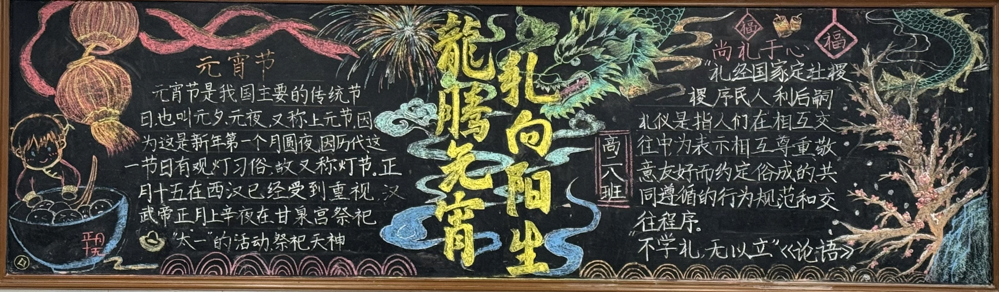 元宵节
元宵节是我国主要的传统节
日也叫元夕、元夜、又称上元节,因
为这是新年第一个月圆夜,因历代这
一节日有观灯习俗,故又称灯节。正
月十五在西汉已经受到重视,汉
武帝正月上辛夜在甘泉宫祭祀
"太一"的活动,祭祀天神
正月
十五
龍腾元宵
礼向阳生
高二八班
福
福
尚礼于心
"礼经国家定社稷
稷序民人利后嗣
礼仪是指人们在相互交
往中为表示相互尊重敬
意友好而约定俗成的共
同遵循的行为规范和交
往程序。
不学礼,无以立"《论语》